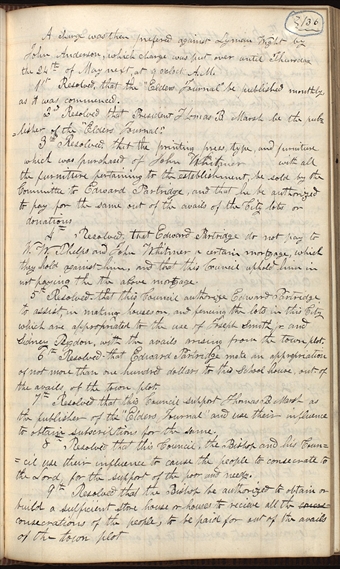 136
A charge was then prefered against Lyman Wight by
John Anderson, which charge was put over until Thursday
the 24th of May next, at 9 oclock A.M.
1st Resolved, that the Elders Journal be published monthly
as it was commenced.
2nd Resolved that President Thomas B. Marsh be the pub-
lisher of the "Elders Journal."
3rd Resolved, that the printing press, type, and furniture
which was purchased of John Whitmer with all
the furniture pertaining to the establishment, be sold by the
Committee to Edward Partridge, and that he be authorized
to pay for the same out of the avails of the City lots or
donations.
4th Resolved, that Edward Partridge do not pay to
W. W. Phelps and John Whitmer a certain mortgage, which
they hold against him, and that this Council uphold him in
not paying the the afore mortgage.
5th Resolved that this Council authorize Edward Partridge
to assist in moting houses on, and fencing the lots in this City,
which are appropriated to the use of Joseph Smith, jr and
Sidney Rigdon, with the avails arising from the town plot.
6th Resolved that Edward Partridge make an appropriation
of not more than one hundred dollars to this School house, out of
the avails of the town plot.
7th Resolved that this Council support Thomas B. Marsh as
the publisher of the "Elders Journal" and use their influence
to obtain subscriptions for the same.
8 Resolved that this Council, the Bishop and his Coun=
=cil use their influence to cause the people to consecrate to
the Lord, for the support of the poor and needy.
9th Resolved that the Bishop be authorized to obtain or
build a sufficient store house or houses to recieve all the
consecrations of the people, to be paid for out of the avails
of the town plot